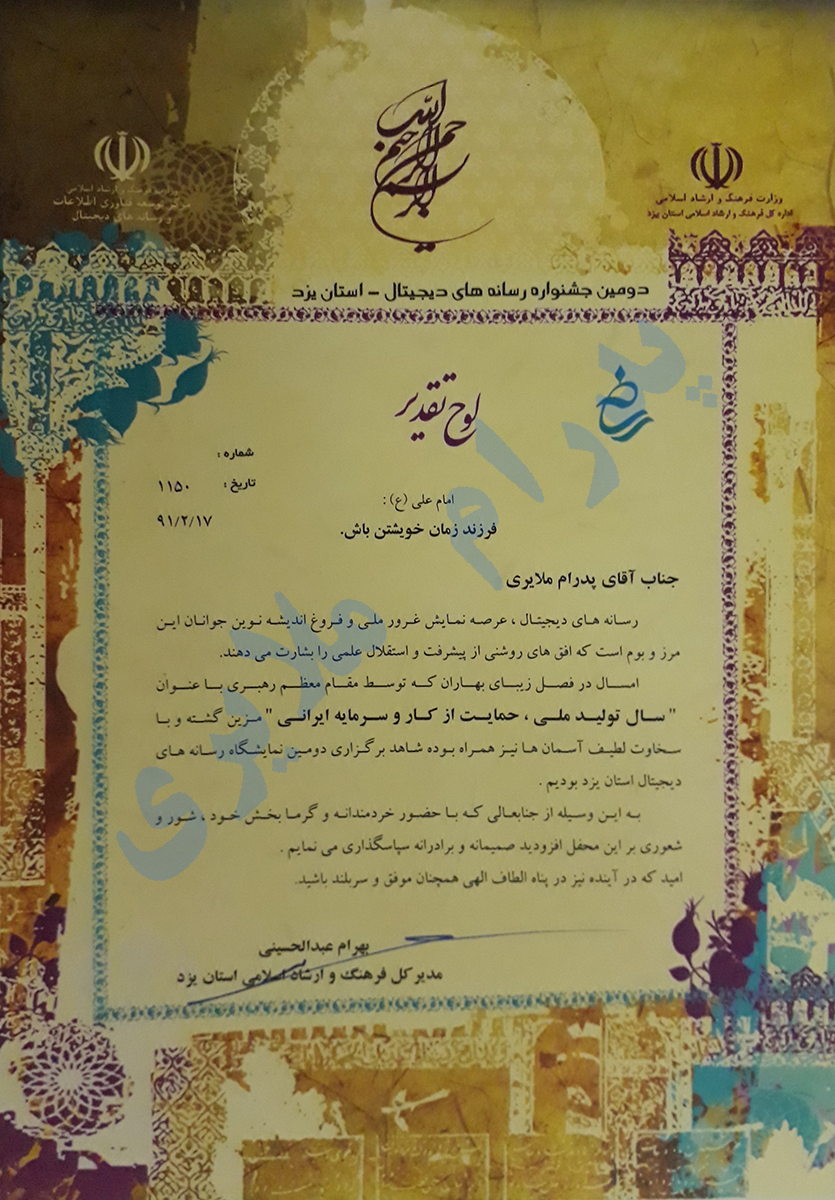 بسم الله الرحمن الرحیم
وزارت فرهنگ و ارشاد اسلامی
اداره کل فرهنگ و ارشاد اسلامی استان یزد
وزارت فرهنگ و ارشاد اسلامی
مرکز توسعه فناوری اطلاعات
و رسانه های دیجیتال
دومین جشنواره رسانه های دیجیتال - استان یزد
لوح تقدیر
شماره :
تاریخ : ۱۱۵۰
۹۱/۲/۱۷
امام علی (ع) :
فرزند زمان خویشتن باش.
جناب آقای پدرام ملایری
رسانه های دیجیتال ، عرصه نمایش غرور ملی و فروغ اندیشه نوین جوانان این
مرز و بوم است که افق های روشنی از پیشرفت و استقلال علمی را بشارت می دهند.
امسال در فصل زیبای بهاران که توسط مقام معظم رهبری با عنوان
" سال تولید ملی ، حمایت از کار و سرمایه ایرانی " مزین گشته و با
سخاوت لطیف آسمان ها نیز همراه بوده شاهد برگزاری دومین نمایشگاه رسانه های
دیجیتال استان یزد بودیم .
به این وسیله از جنابعالی که با حضور خردمندانه و گرما بخش خود ، شور و
شعوری بر این محفل افزودید صمیمانه و برادرانه سپاسگذاری می نمایم .
امید که در آینده نیز در پناه الطاف الهی همچنان موفق و سربلند باشید.
بهرام عبدالحسینی
مدیر کل فرهنگ و ارشاد اسلامی استان یزد
پدرام ملایری